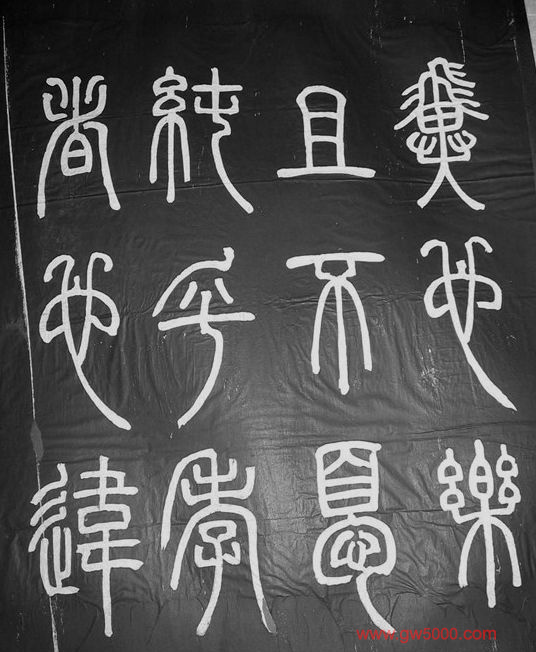 翼也樂
且不憂
純乎孝
者也違
www.gw5000.com